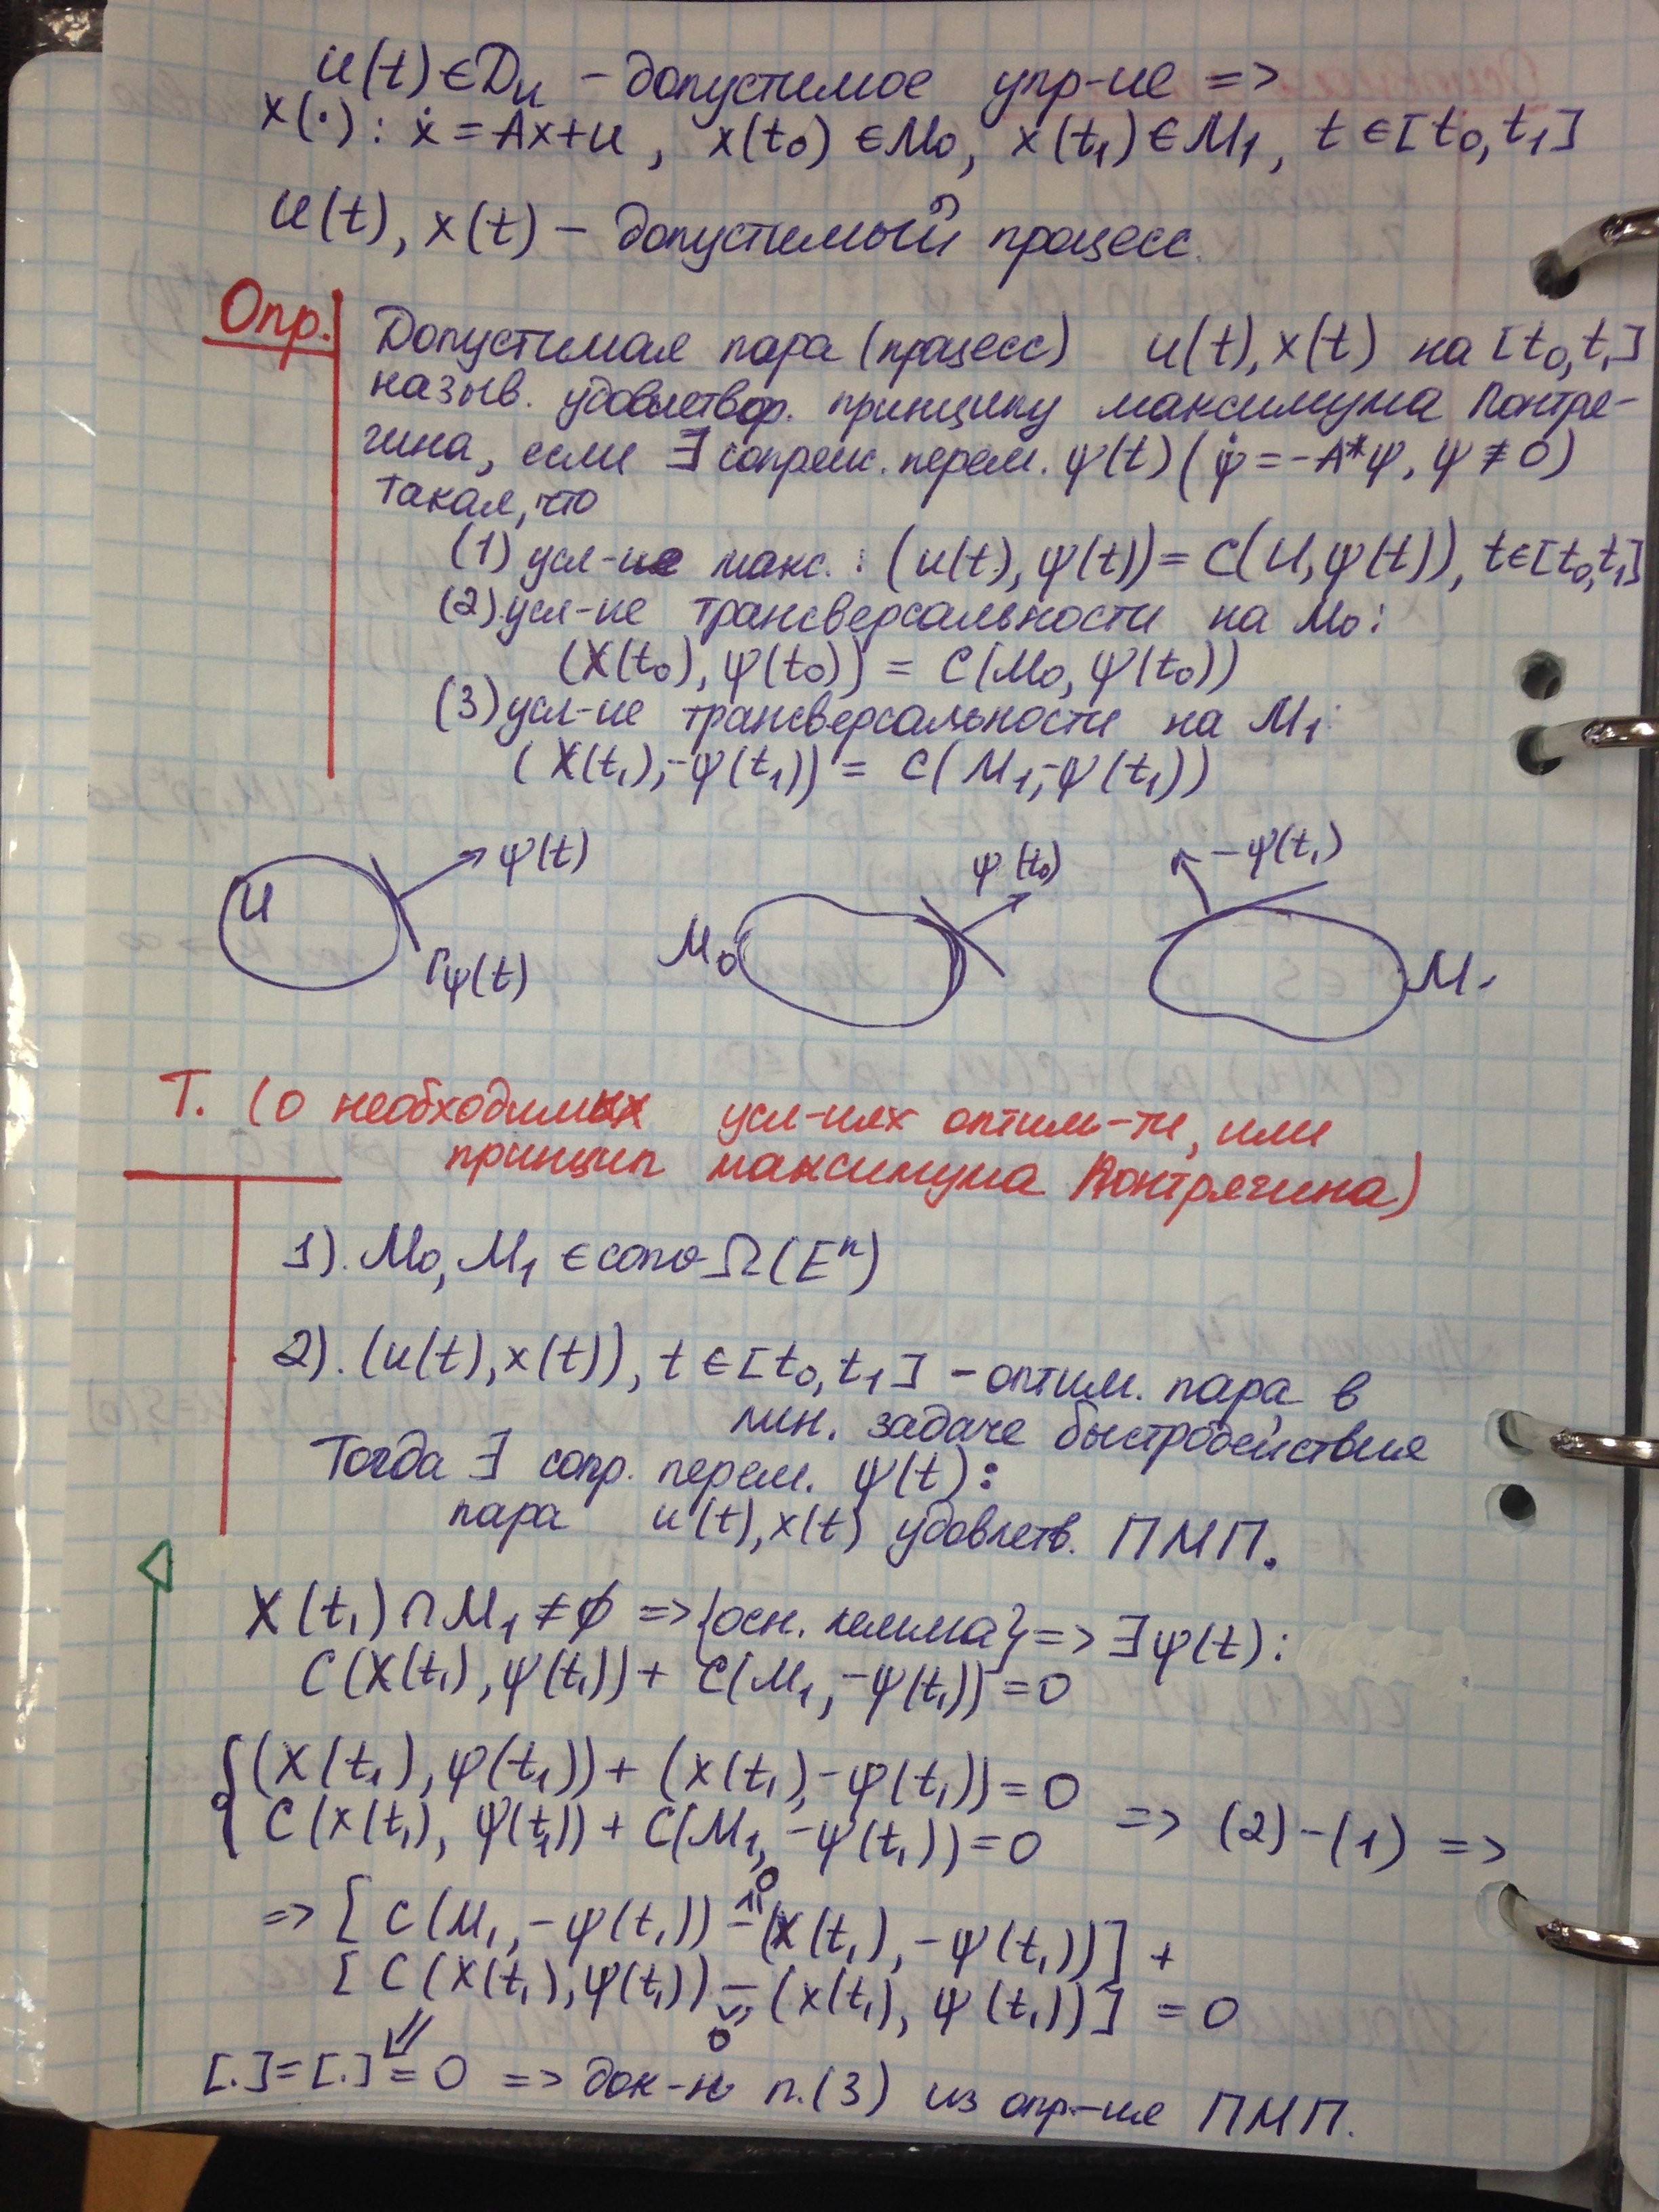 u(t) ∈ Du – допустимое упр-ие =>
x(·): ẋ = Ax+u, x(t₀) ∈ M₀, x(t₁) ∈ M₁, t ∈ [t₀, t₁]
u(t), x(t) – допустимый процесс.
Опр. Допустимая пара (процесс) u(t), x(t) на [t₀, t₁]
назыв. удовлетвор. принципу максимума Понтря-
гина, если ∃ сопряж. перем. ψ(t) (ψ̇ = -A*ψ, ψ ≢ 0)
такая, что
(1) усл-ие макс.: (u(t), ψ(t)) = C(U, ψ(t)), t∈[t₀, t₁]
(2) усл-ие трансверсальности на M₀:
(x(t₀), ψ(t₀)) = C(M₀, ψ(t₀))
(3) усл-ие трансверсальности на M₁:
(x(t₁), -ψ(t₁)) = C(M₁, -ψ(t₁))
U ψ(t) Γψ(t)
M₀ ψ(t₀)
-ψ(t₁) M₁
Т. (о необходимых усл-иях оптим-ти, или
принцип максимума Понтрягина)
1). M₀, M₁ ∈ conv Ω(Eⁿ)
2). (u(t), x(t)), t ∈ [t₀, t₁] – оптим. пара в
лин. задаче быстродействия
Тогда ∃ сопр. перем. ψ(t):
пара u(t), x(t) удовлетв. ПМП.
X(t₁) ∩ M₁ ≠ ∅ => {осн. лемма} => ∃ ψ(t):
C(X(t₁), ψ(t₁)) + C(M₁, -ψ(t₁)) = 0
{ (x(t₁), ψ(t₁)) + (x(t₁), -ψ(t₁)) = 0
C(X(t₁), ψ(t₁)) + C(M₁, -ψ(t₁)) = 0 => (2)-(1) =>
=> [C(M₁, -ψ(t₁)) - (x(t₁), -ψ(t₁))] +
[C(X(t₁), ψ(t₁)) - (x(t₁), ψ(t₁))] = 0
[.] = [.] = 0 => док-н п.(3) из опр-ие ПМП.